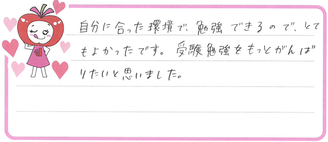 自分に合った環境で、勉強できるので、とて
もよかったです。受験勉強をもっとがんば
りたいと思いました。